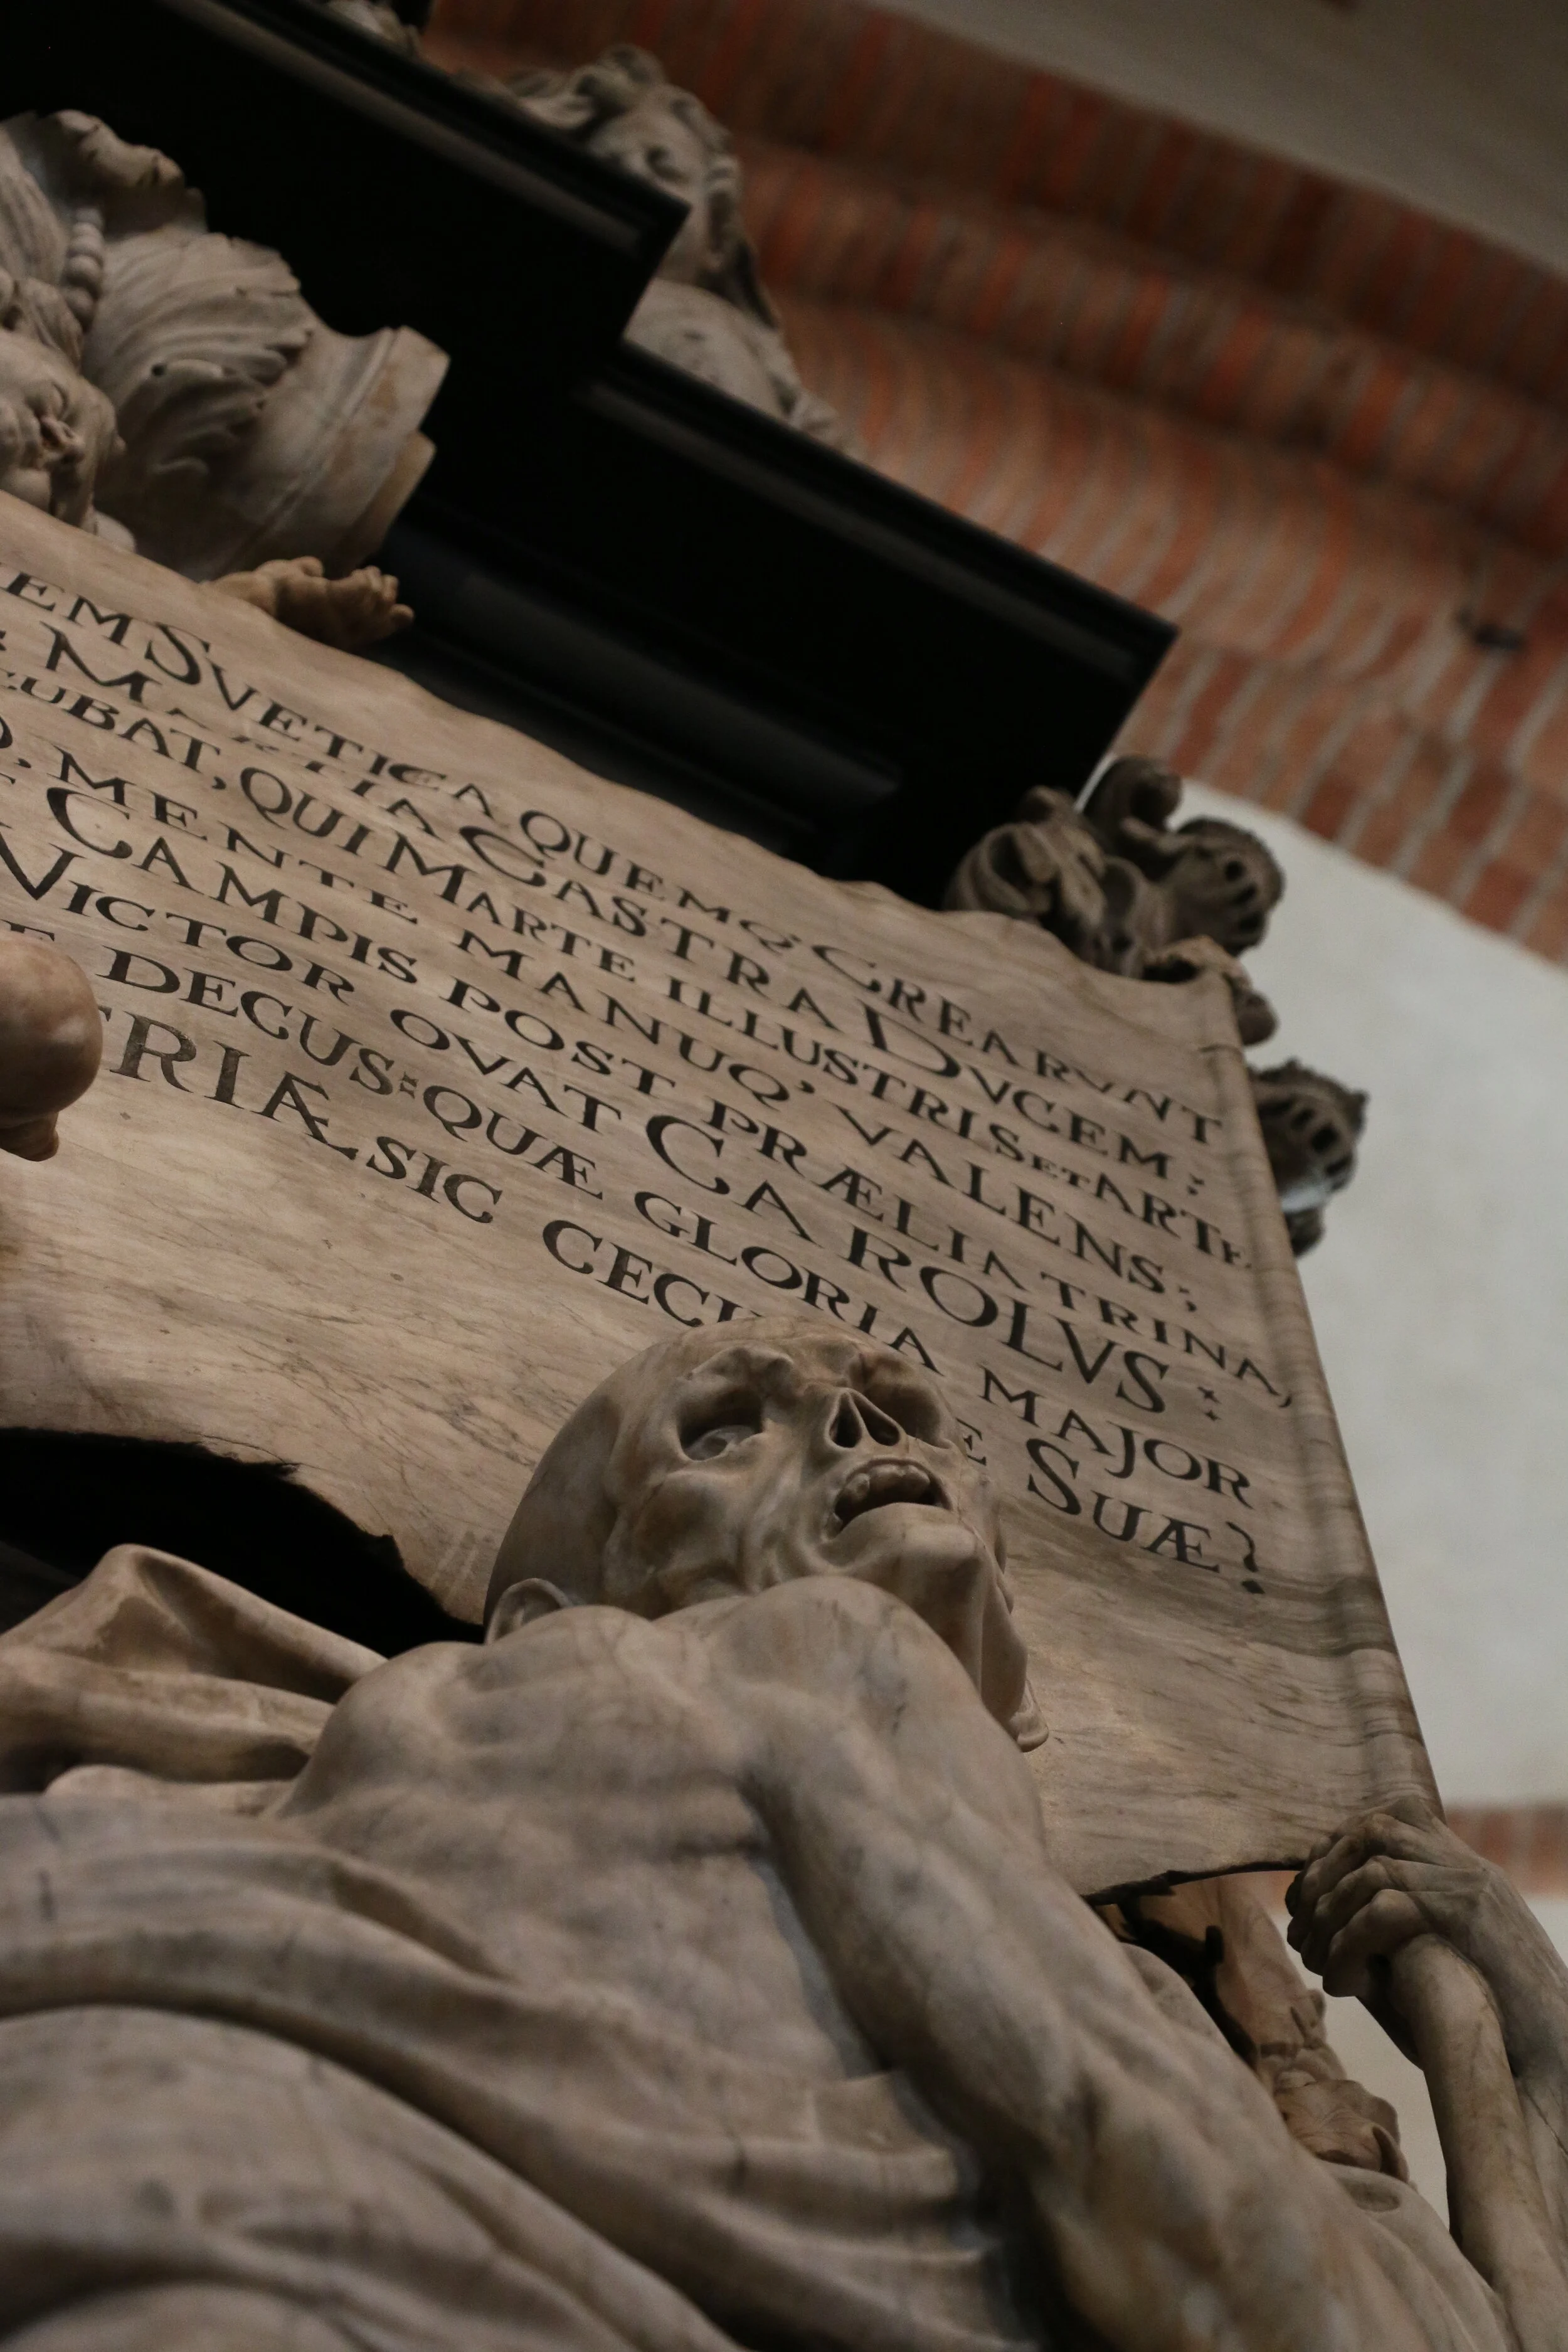 EM SVETICA QUEMQ, CREARVNT
: MARTIA CASTRA DVCEM :
CUBAT, QUI MARTE ILLUSTRIS ET ARTE
, MENTE MANUQ, VALENS ;
CAMPIS POST PRÆLIA TRINA,
VICTOR OVAT CAROLVS :
DECUS : QUÆ GLORIA MAJOR
TRIÆ SIC CECI E SUÆ ?